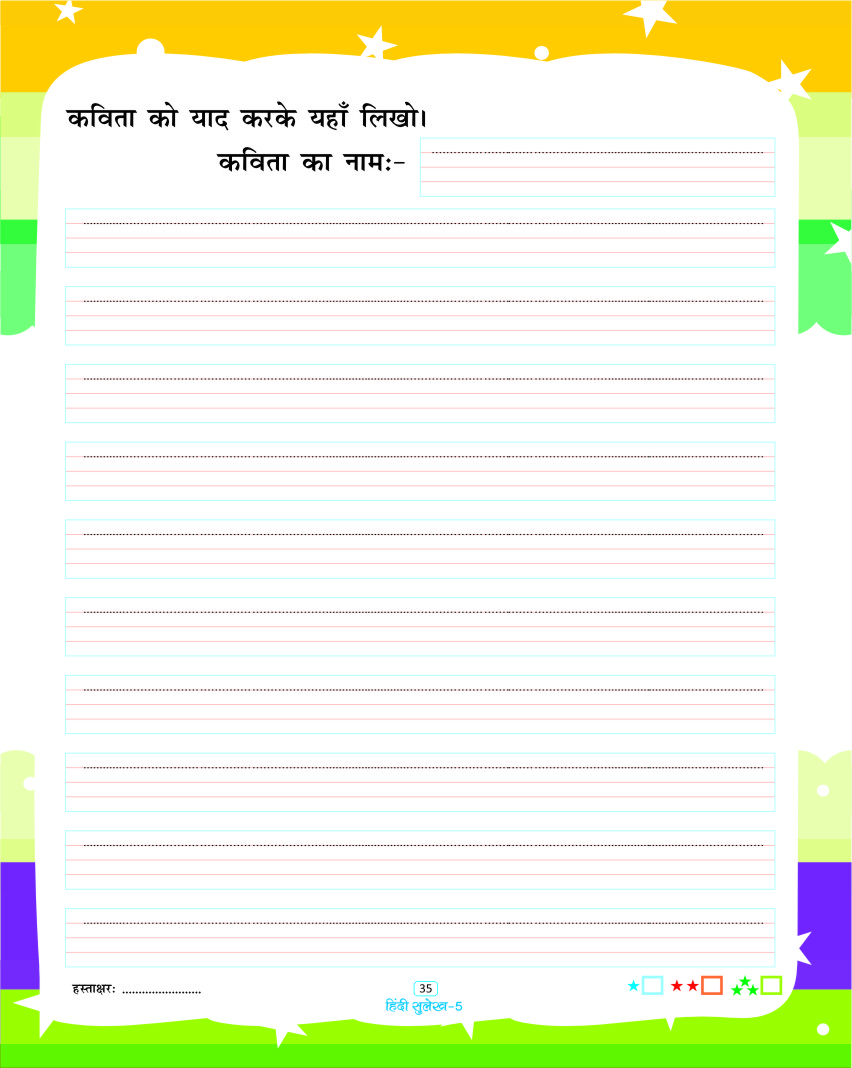 कविता को याद करके यहाँ लिखो।
कविता का नामः-
हस्ताक्षरः ........................
35
हिंदी सुलेख-5